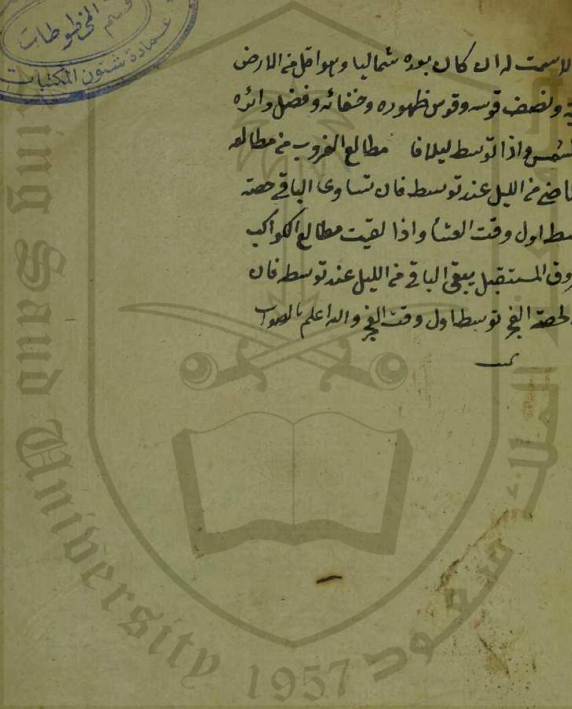 قسم المخطوطات
عمادة شئون المكتبات
لا سمت له ان كان بعده شماليا وهو اقل من الارض
ونصف قوسه وقوس ظهوره وخفائه وفضل دائره
الشمس واذا توسط ليلا فا مطالع الغروب من مطالعه
من الليل عند توسطه فان تساوى الباقي حصة
اول وقت العشا واذا لقيت مطالع الكواكب
المستقبل يبقى الباقي من الليل عند توسطه فان
لحصة الفجر توسط اول وقت الفجر والله اعلم بالصواب
King Saud University 1957
جامعة الملك سعود